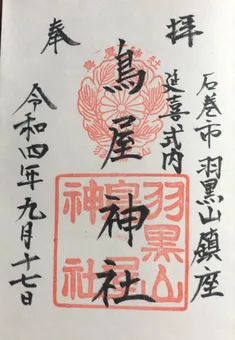 奉拝
石巻市 羽黒山鎮座
延喜式内
鳥屋神社
羽黒山
神社
令和四年九月十七日